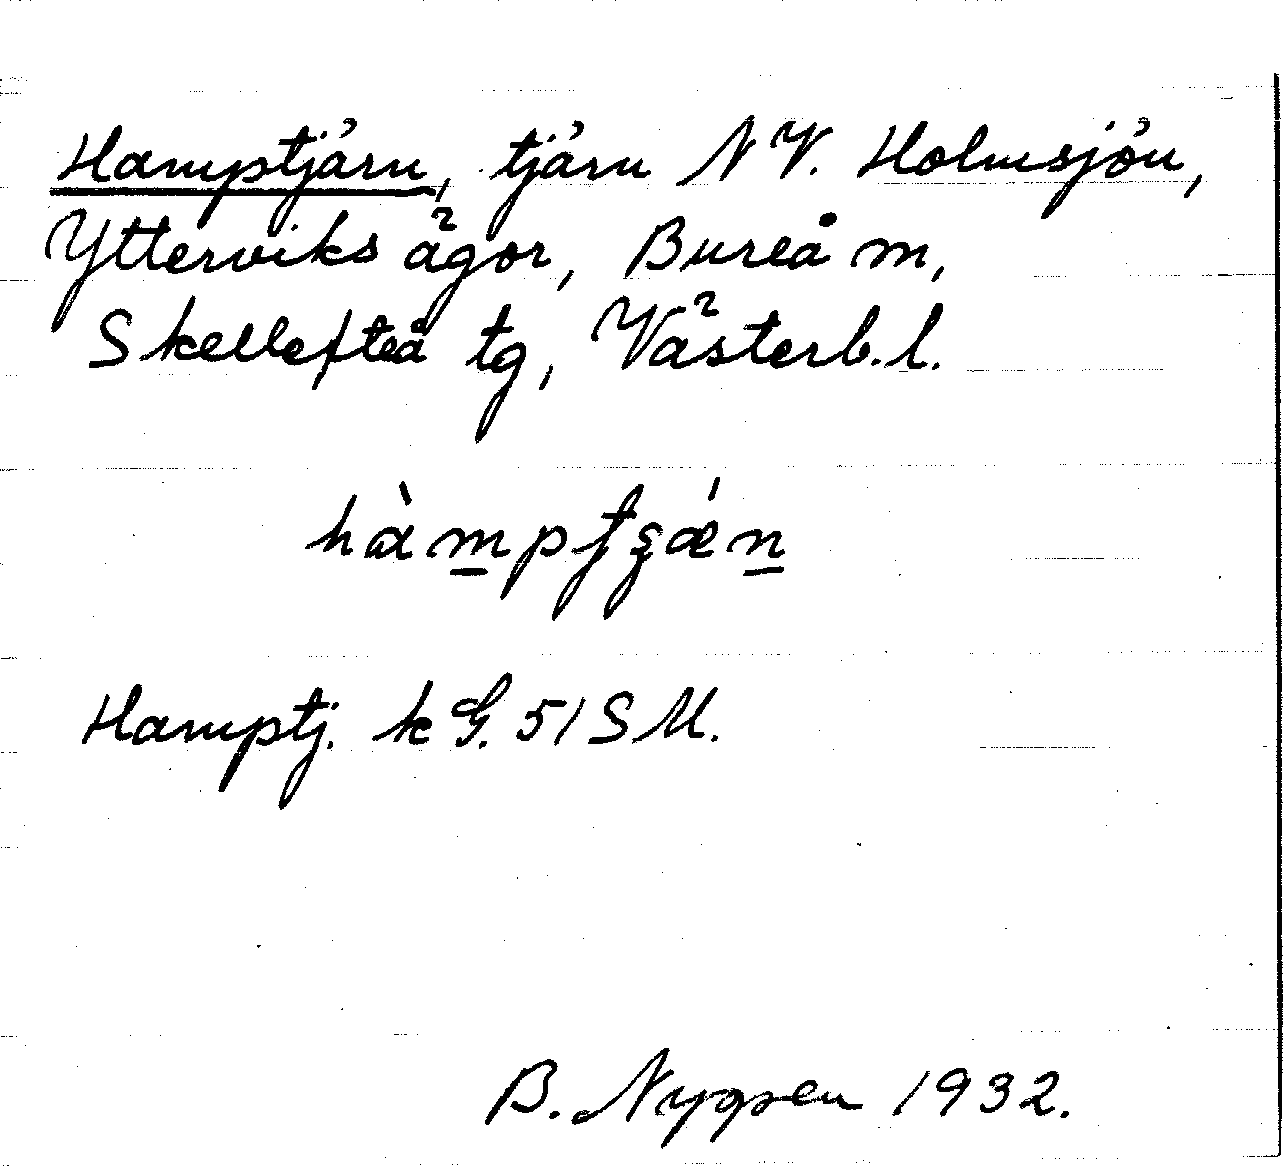 Hamptjärn, tjärn NV. Holmsjön,
Ytterviks ägor, Bureå m,
Skellefteå tg, Västerb. l.
hàmpʈʂǽn
Hamptj. k G. 51 SM.
B. Nygren 1932.